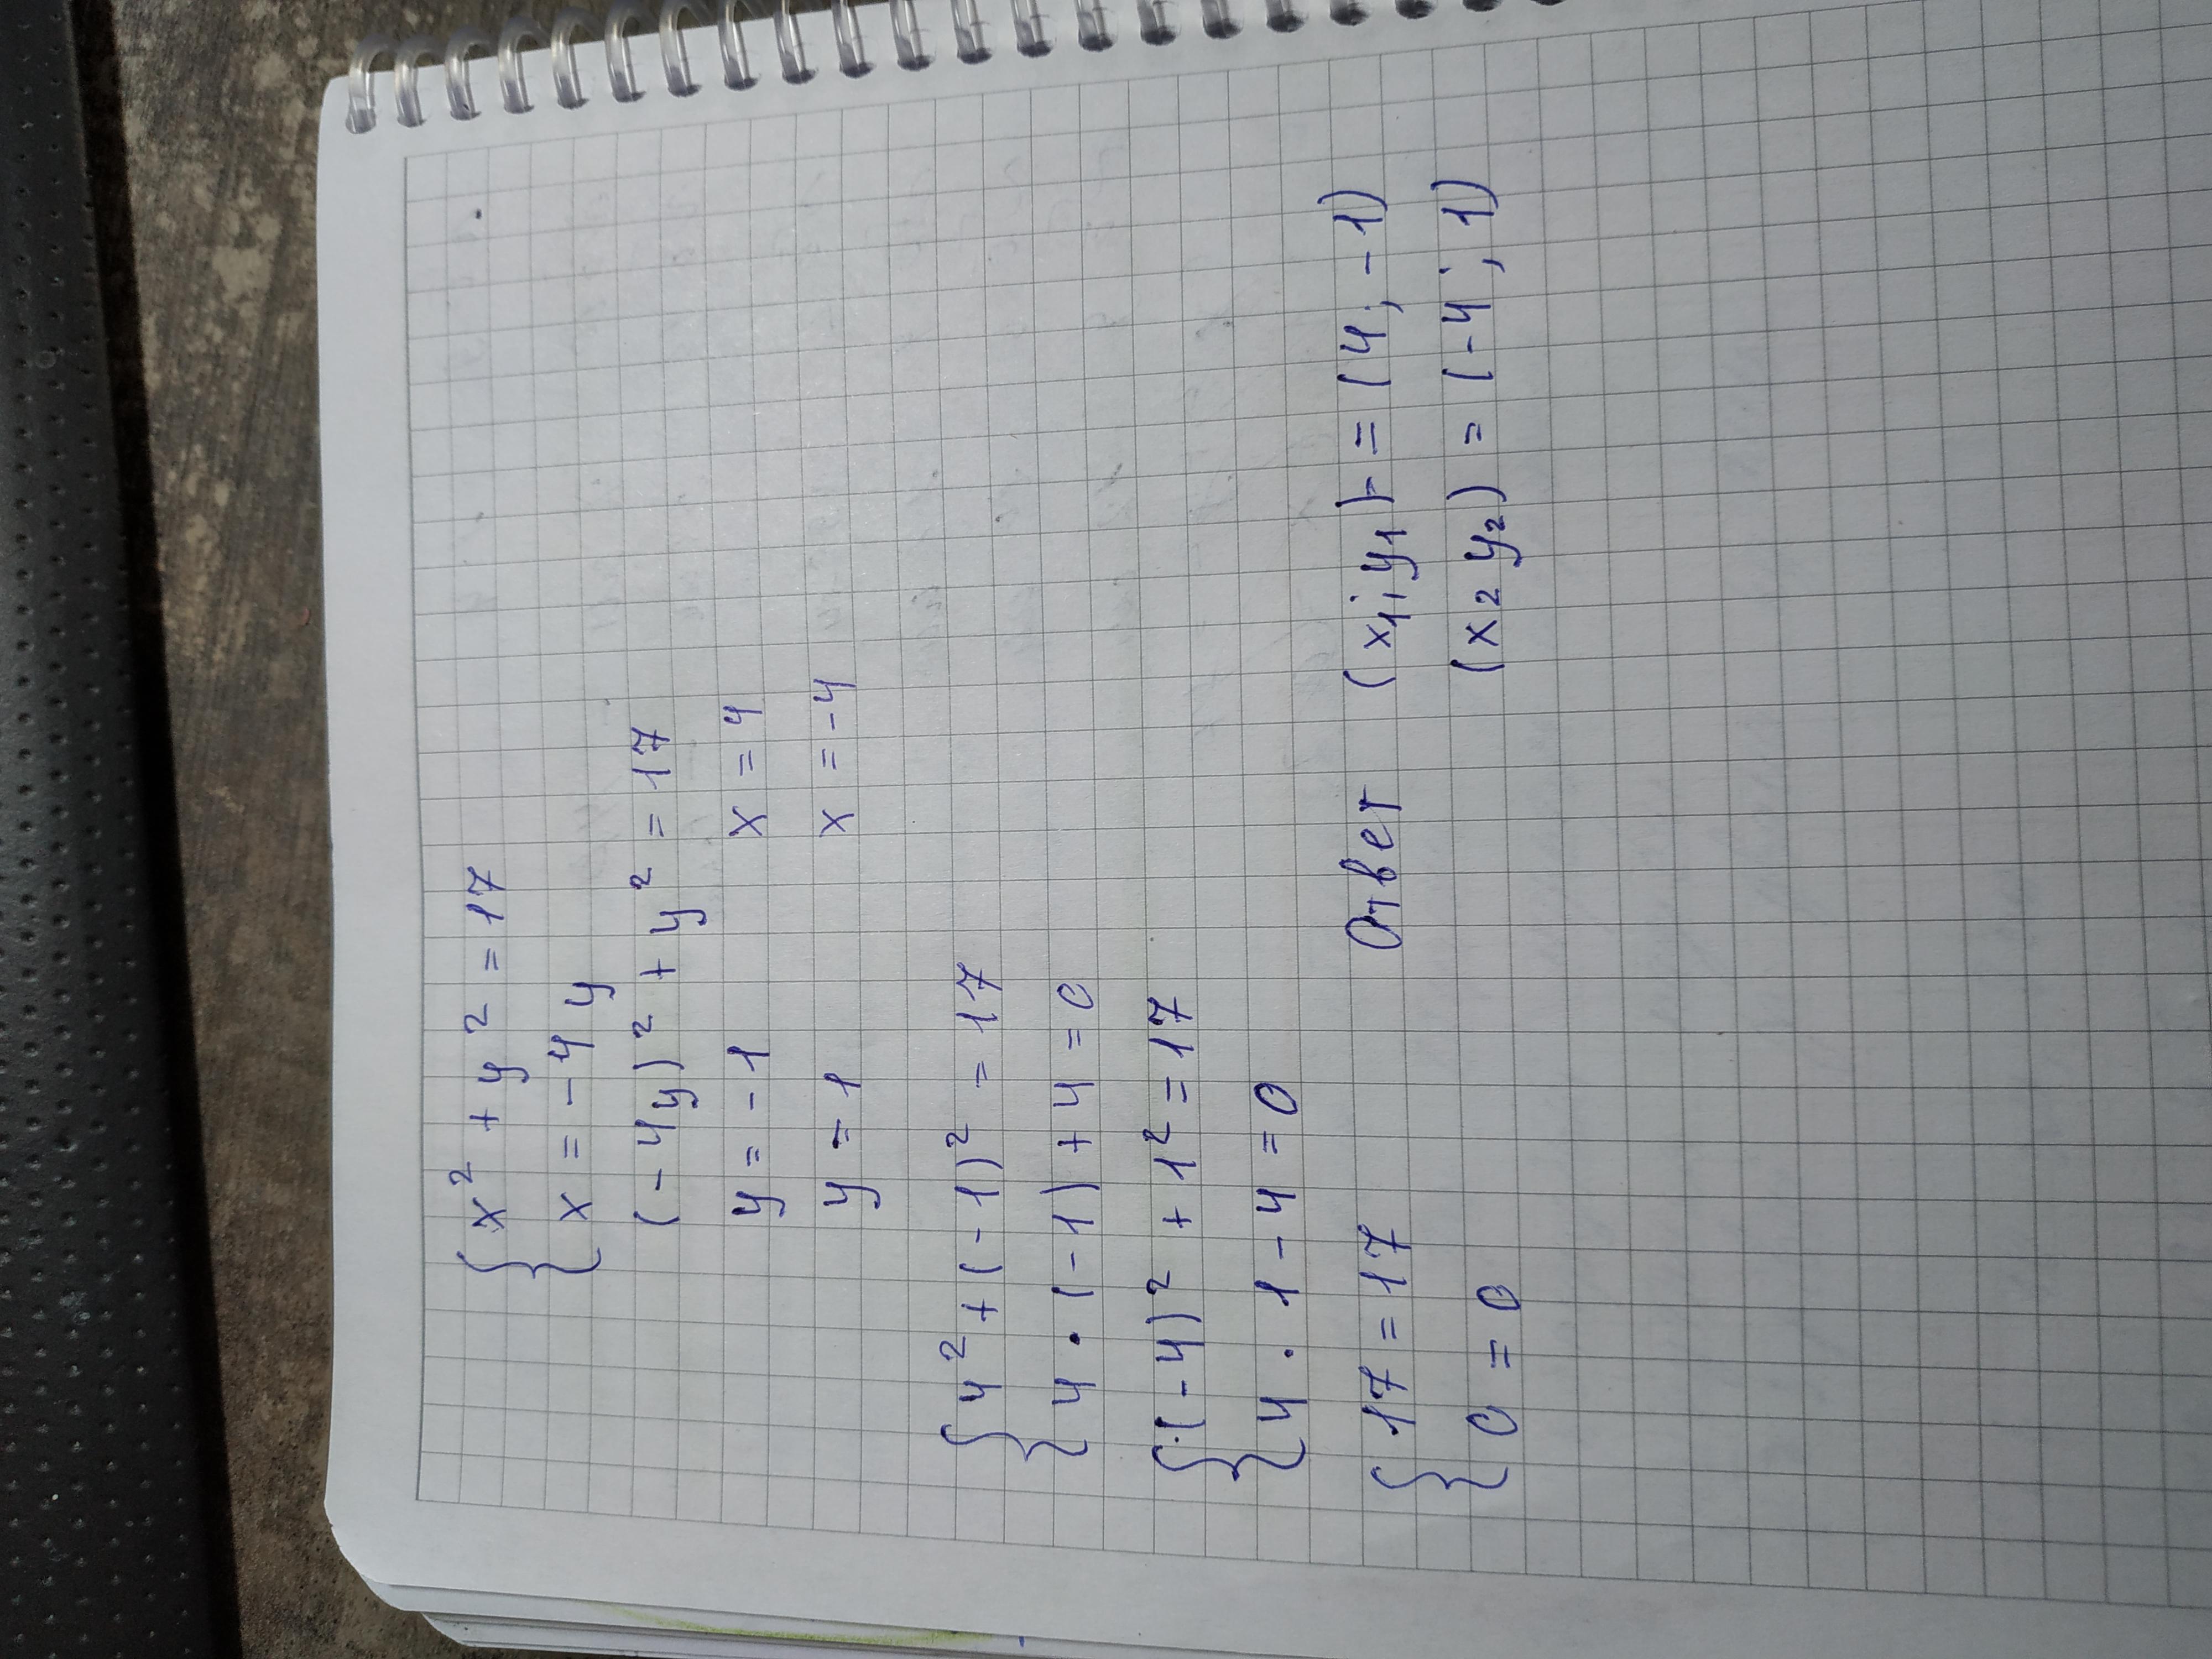 {x² + y² = 17
{x = -4y
(-4y)² + y² = 17
y = -1 x = 4
y = 1 x = -4
{4² + (-1)² = 17
{4 · (-1) + 4 = 0
{(-4)² + 1² = 17
{4 · 1 - 4 = 0
{17 = 17 Ответ (x₁; y₁) = (4; -1)
{0 = 0 (x₂ y₂) = (-4; 1)